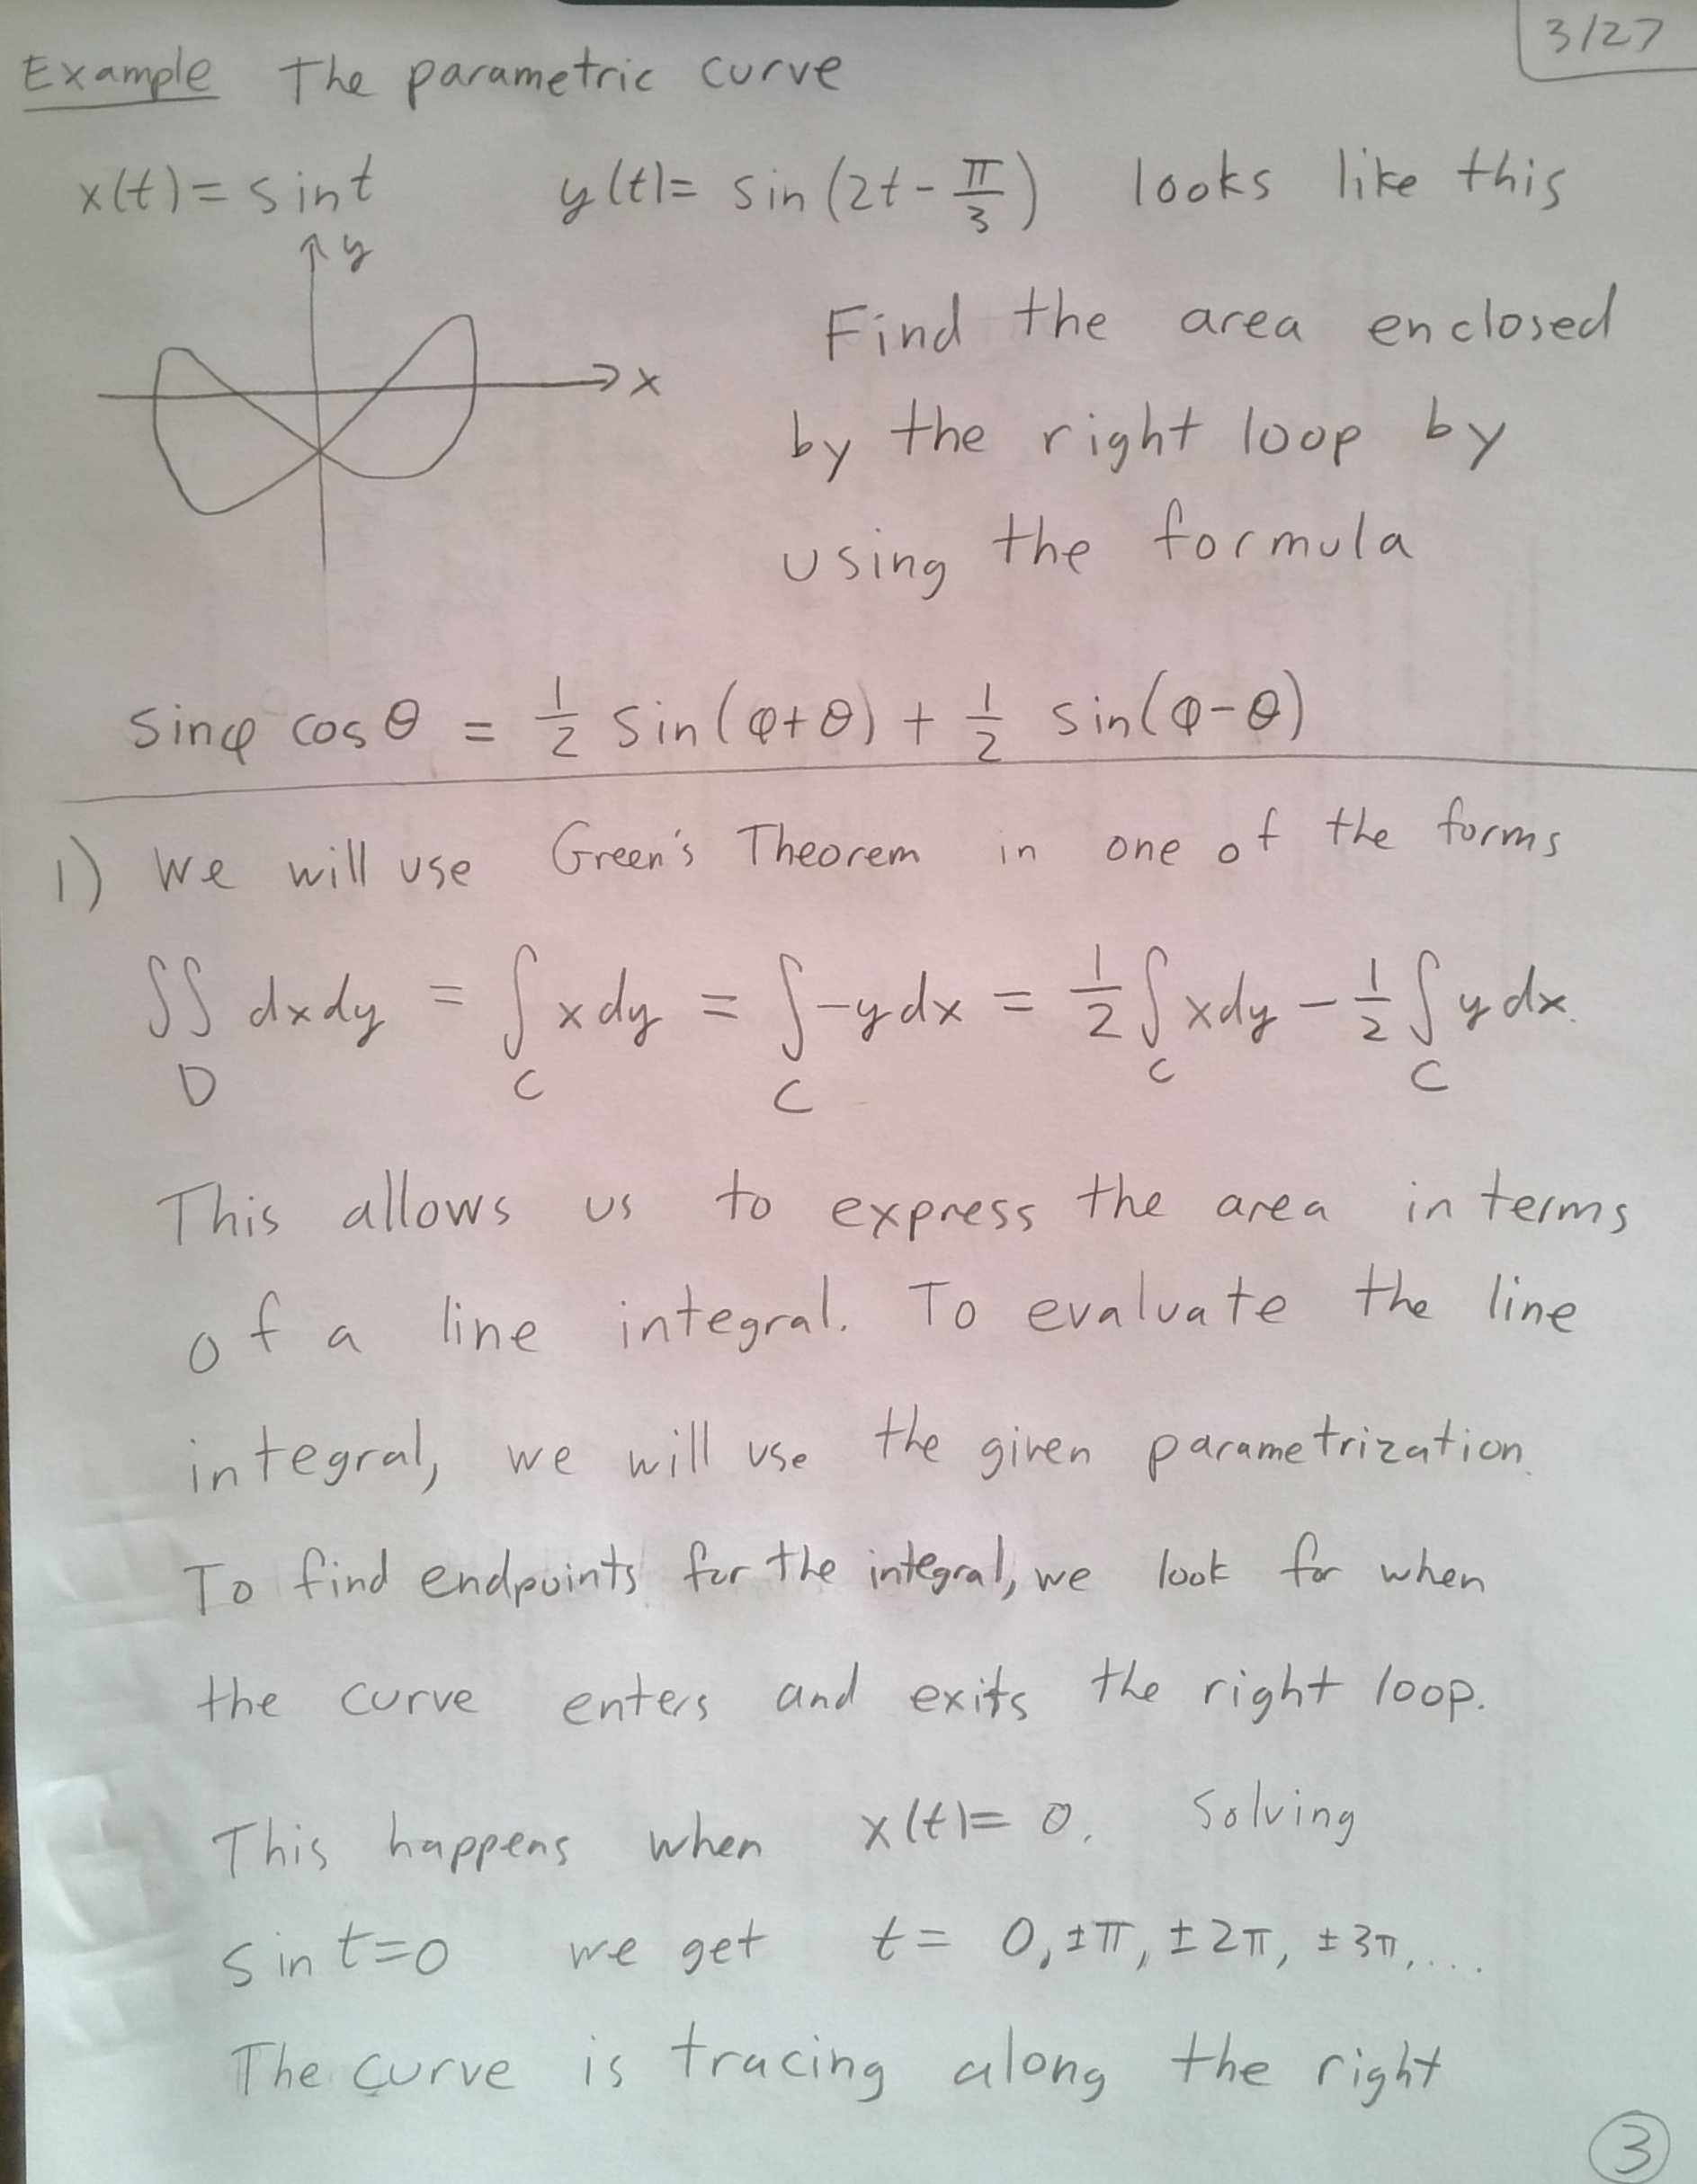 3/27
Example The parametric curve
x(t) = sin t y(t) = sin (2t - π/3) looks like this
y
x
Find the area enclosed
by the right loop by
using the formula
sinφ cosθ = 1/2 sin(φ+θ) + 1/2 sin(φ-θ)
1) we will use Green's Theorem in one of the forms
∬_D dxdy = ∫_C xdy = ∫_C -ydx = 1/2 ∫_C xdy - 1/2 ∫_C ydx.
This allows us to express the area in terms
of a line integral. To evaluate the line
integral, we will use the given parametrization.
To find endpoints for the integral, we look for when
the curve enters and exits the right loop.
This happens when x(t) = 0. Solving
sin t=0 we get t = 0, ±π, ±2π, ±3π,...
The curve is tracing along the right
3